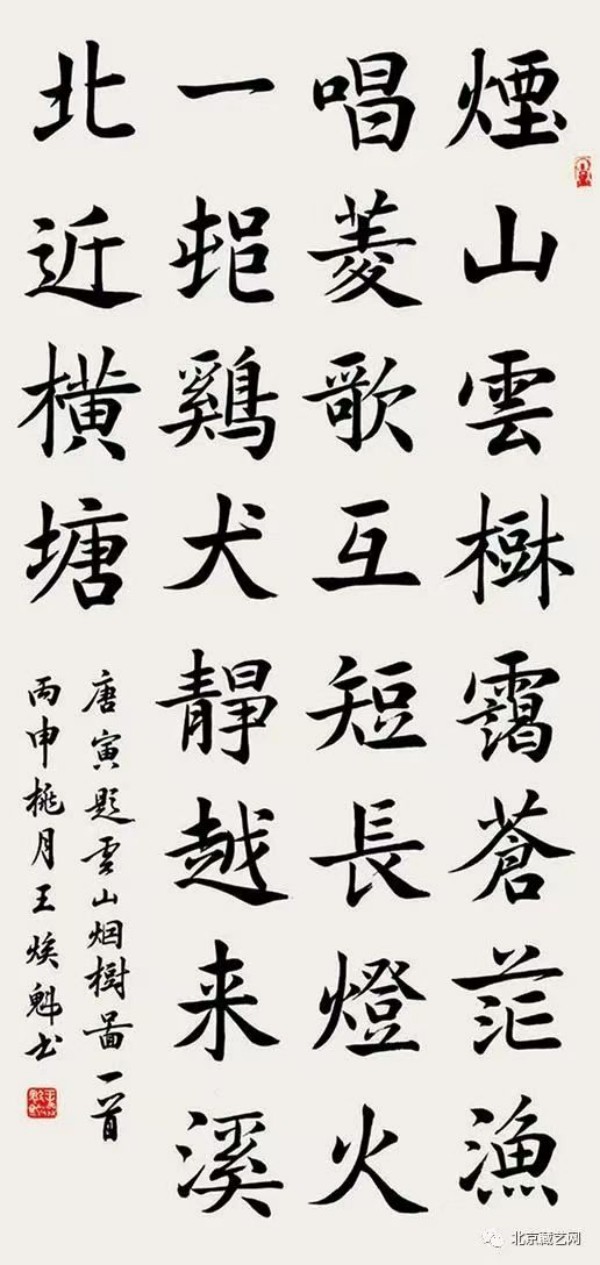 煙山雲樹靄蒼茫漁
唱菱歌互短長燈火
一邨鷄犬靜越来溪
北近横塘
唐寅題雲山烟樹圖一首
丙申桃月王焕魁书
北京藏艺网